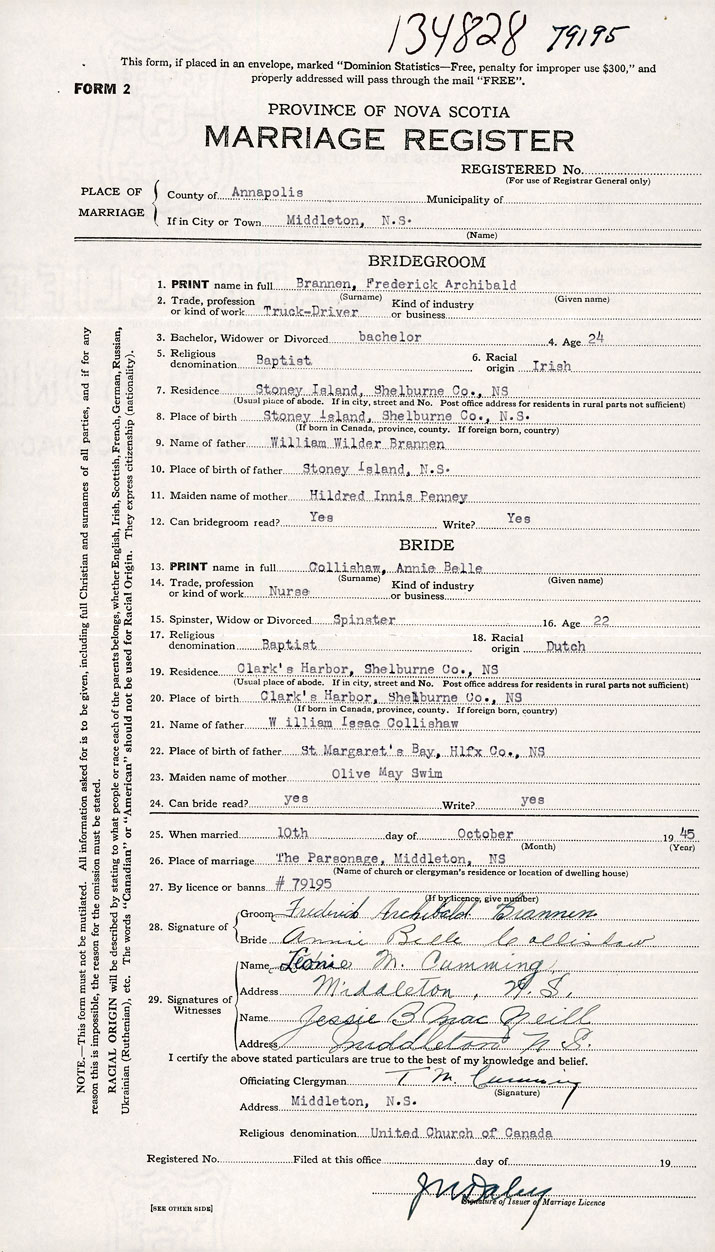 134828 79195
This form, if placed in an envelope, marked "Dominion Statistics—Free, penalty for improper use $300," and
properly addressed will pass through the mail "FREE".
FORM 2
PROVINCE OF NOVA SCOTIA
MARRIAGE REGISTER
REGISTERED No.
(For use of Registrar General only)
PLACE OF MARRIAGE
County of Annapolis Municipality of
If in City or Town Middleton, N.S.
(Name)
BRIDEGROOM
1. PRINT name in full Brannen, Frederick Archibald
(Surname) (Given name)
2. Trade, profession or kind of work Truck-Driver Kind of industry or business
3. Bachelor, Widower or Divorced bachelor 4. Age 24
5. Religious denomination Baptist 6. Racial origin Irish
7. Residence Stoney Island, Shelburne Co., NS
(Usual place of abode. If in city, street and No. Post office address for residents in rural parts not sufficient)
8. Place of birth Stoney Island, Shelburne Co., N.S.
(If born in Canada, province, county. If foreign born, country)
9. Name of father William Wilder Brannen
10. Place of birth of father Stoney Island, N.S.
11. Maiden name of mother Hildred Innis Penney
12. Can bridegroom read? Yes Write? Yes
BRIDE
13. PRINT name in full Collishaw, Annie Belle
(Surname) (Given name)
14. Trade, profession or kind of work Nurse Kind of industry or business
15. Spinster, Widow or Divorced Spinster 16. Age 22
17. Religious denomination Baptist 18. Racial origin Dutch
19. Residence Clark's Harbor, Shelburne Co., NS
(Usual place of abode. If in city, street and No. Post office address for residents in rural parts not sufficient)
20. Place of birth Clark's Harbor, Shelburne Co., NS
(If born in Canada, province, county. If foreign born, country)
21. Name of father W illiam Issac Collishaw
22. Place of birth of father St Margaret's Bay, Hlfx Co., NS
23. Maiden name of mother Olive May Swim
24. Can bride read? yes Write? yes
25. When married 10th day of October 19 45
(Month) (Year)
26. Place of marriage The Parsonage, Middleton, NS
(Name of church or clergyman's residence or location of dwelling house)
27. By licence or banns # 79195
(If by licence, give number)
28. Signature of
Groom Frederick Archibald Brannen
Bride Annie Belle Collishaw
29. Signatures of Witnesses
Name M. Cumming
Address Middleton, N.S.
Name Jessie B Mac Neill
Address Middleton N.S.
I certify the above stated particulars are true to the best of my knowledge and belief.
Officiating Clergyman T. M. Cumming
(Signature)
Address Middleton, N.S.
Religious denomination United Church of Canada
Registered No. Filed at this office day of 19
Signature of Issuer of Marriage Licence
[SEE OTHER SIDE]
NOTE.—This form must not be mutilated. All information asked for is to be given, including full Christian and surnames of all parties, and if for any
reason this is impossible, the reason for the omission must be stated.
RACIAL ORIGIN will be described by stating to what people or race each of the parents belongs, whether English, Irish, Scottish, French, German, Russian,
Ukrainian (Ruthenian), etc. The words "Canadian" or "American" should not be used for Racial Origin. They express citizenship (nationality).